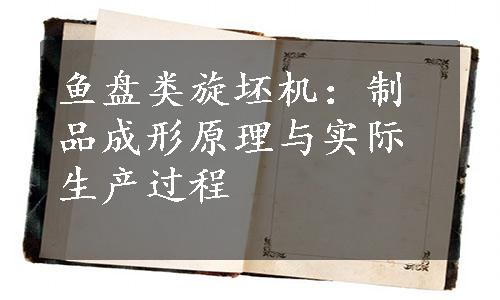 鱼盘类旋坯机：制
品成形原理与实际
生产过程